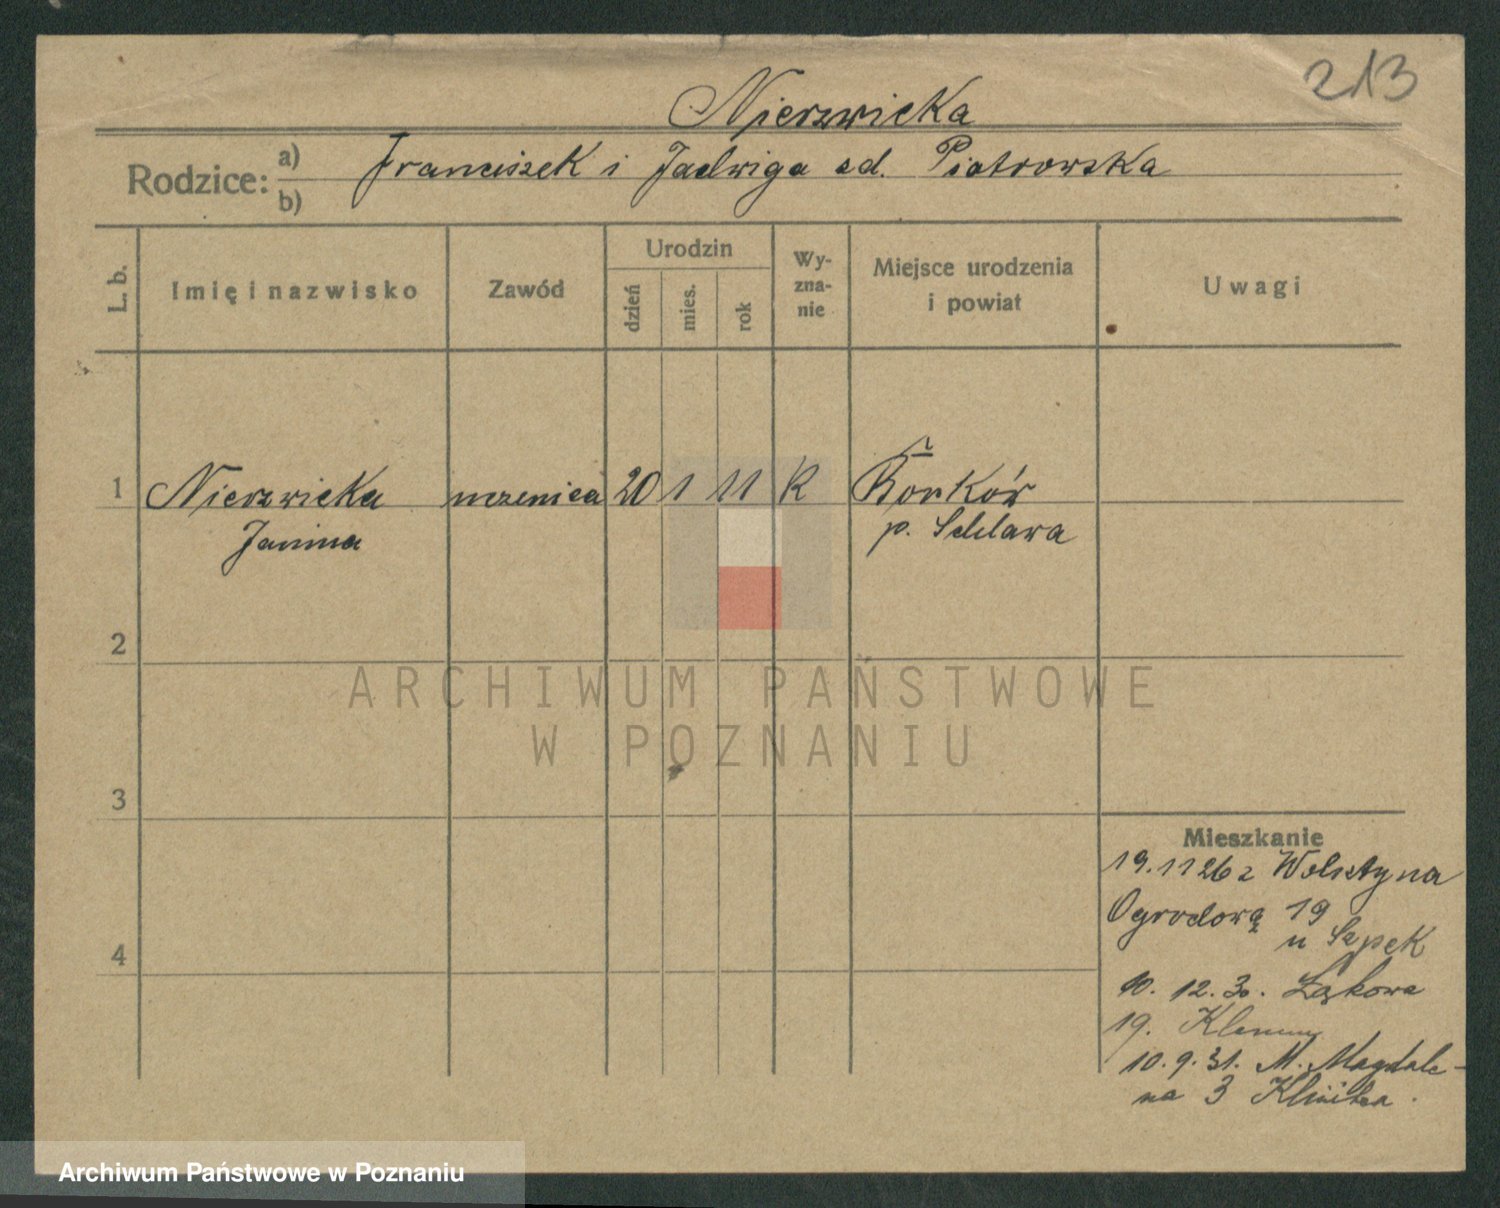 213
Nierzwicka
Rodzice: a) b)
Franciszek i Jadwiga zd. Piotrowska
L. b.
Imię i nazwisko
Zawód
Urodzin
dzień
mies.
rok
Wy-
zna-
nie
Miejsce urodzenia
i powiat
Uwagi
1 Nierzwicka uczenica 20 1 11 R
Janina
p.
2
3
4
Mieszkanie
19.11 26 z Wolsztyna
Ogrodową 19
u
10. 12. 30. Łąkowa
19.
10. 9. 31. M. Magdale-
na 3
ARCHIWUM PAŃSTWOWE
W POZNANIU
Archiwum Państwowe w Poznaniu